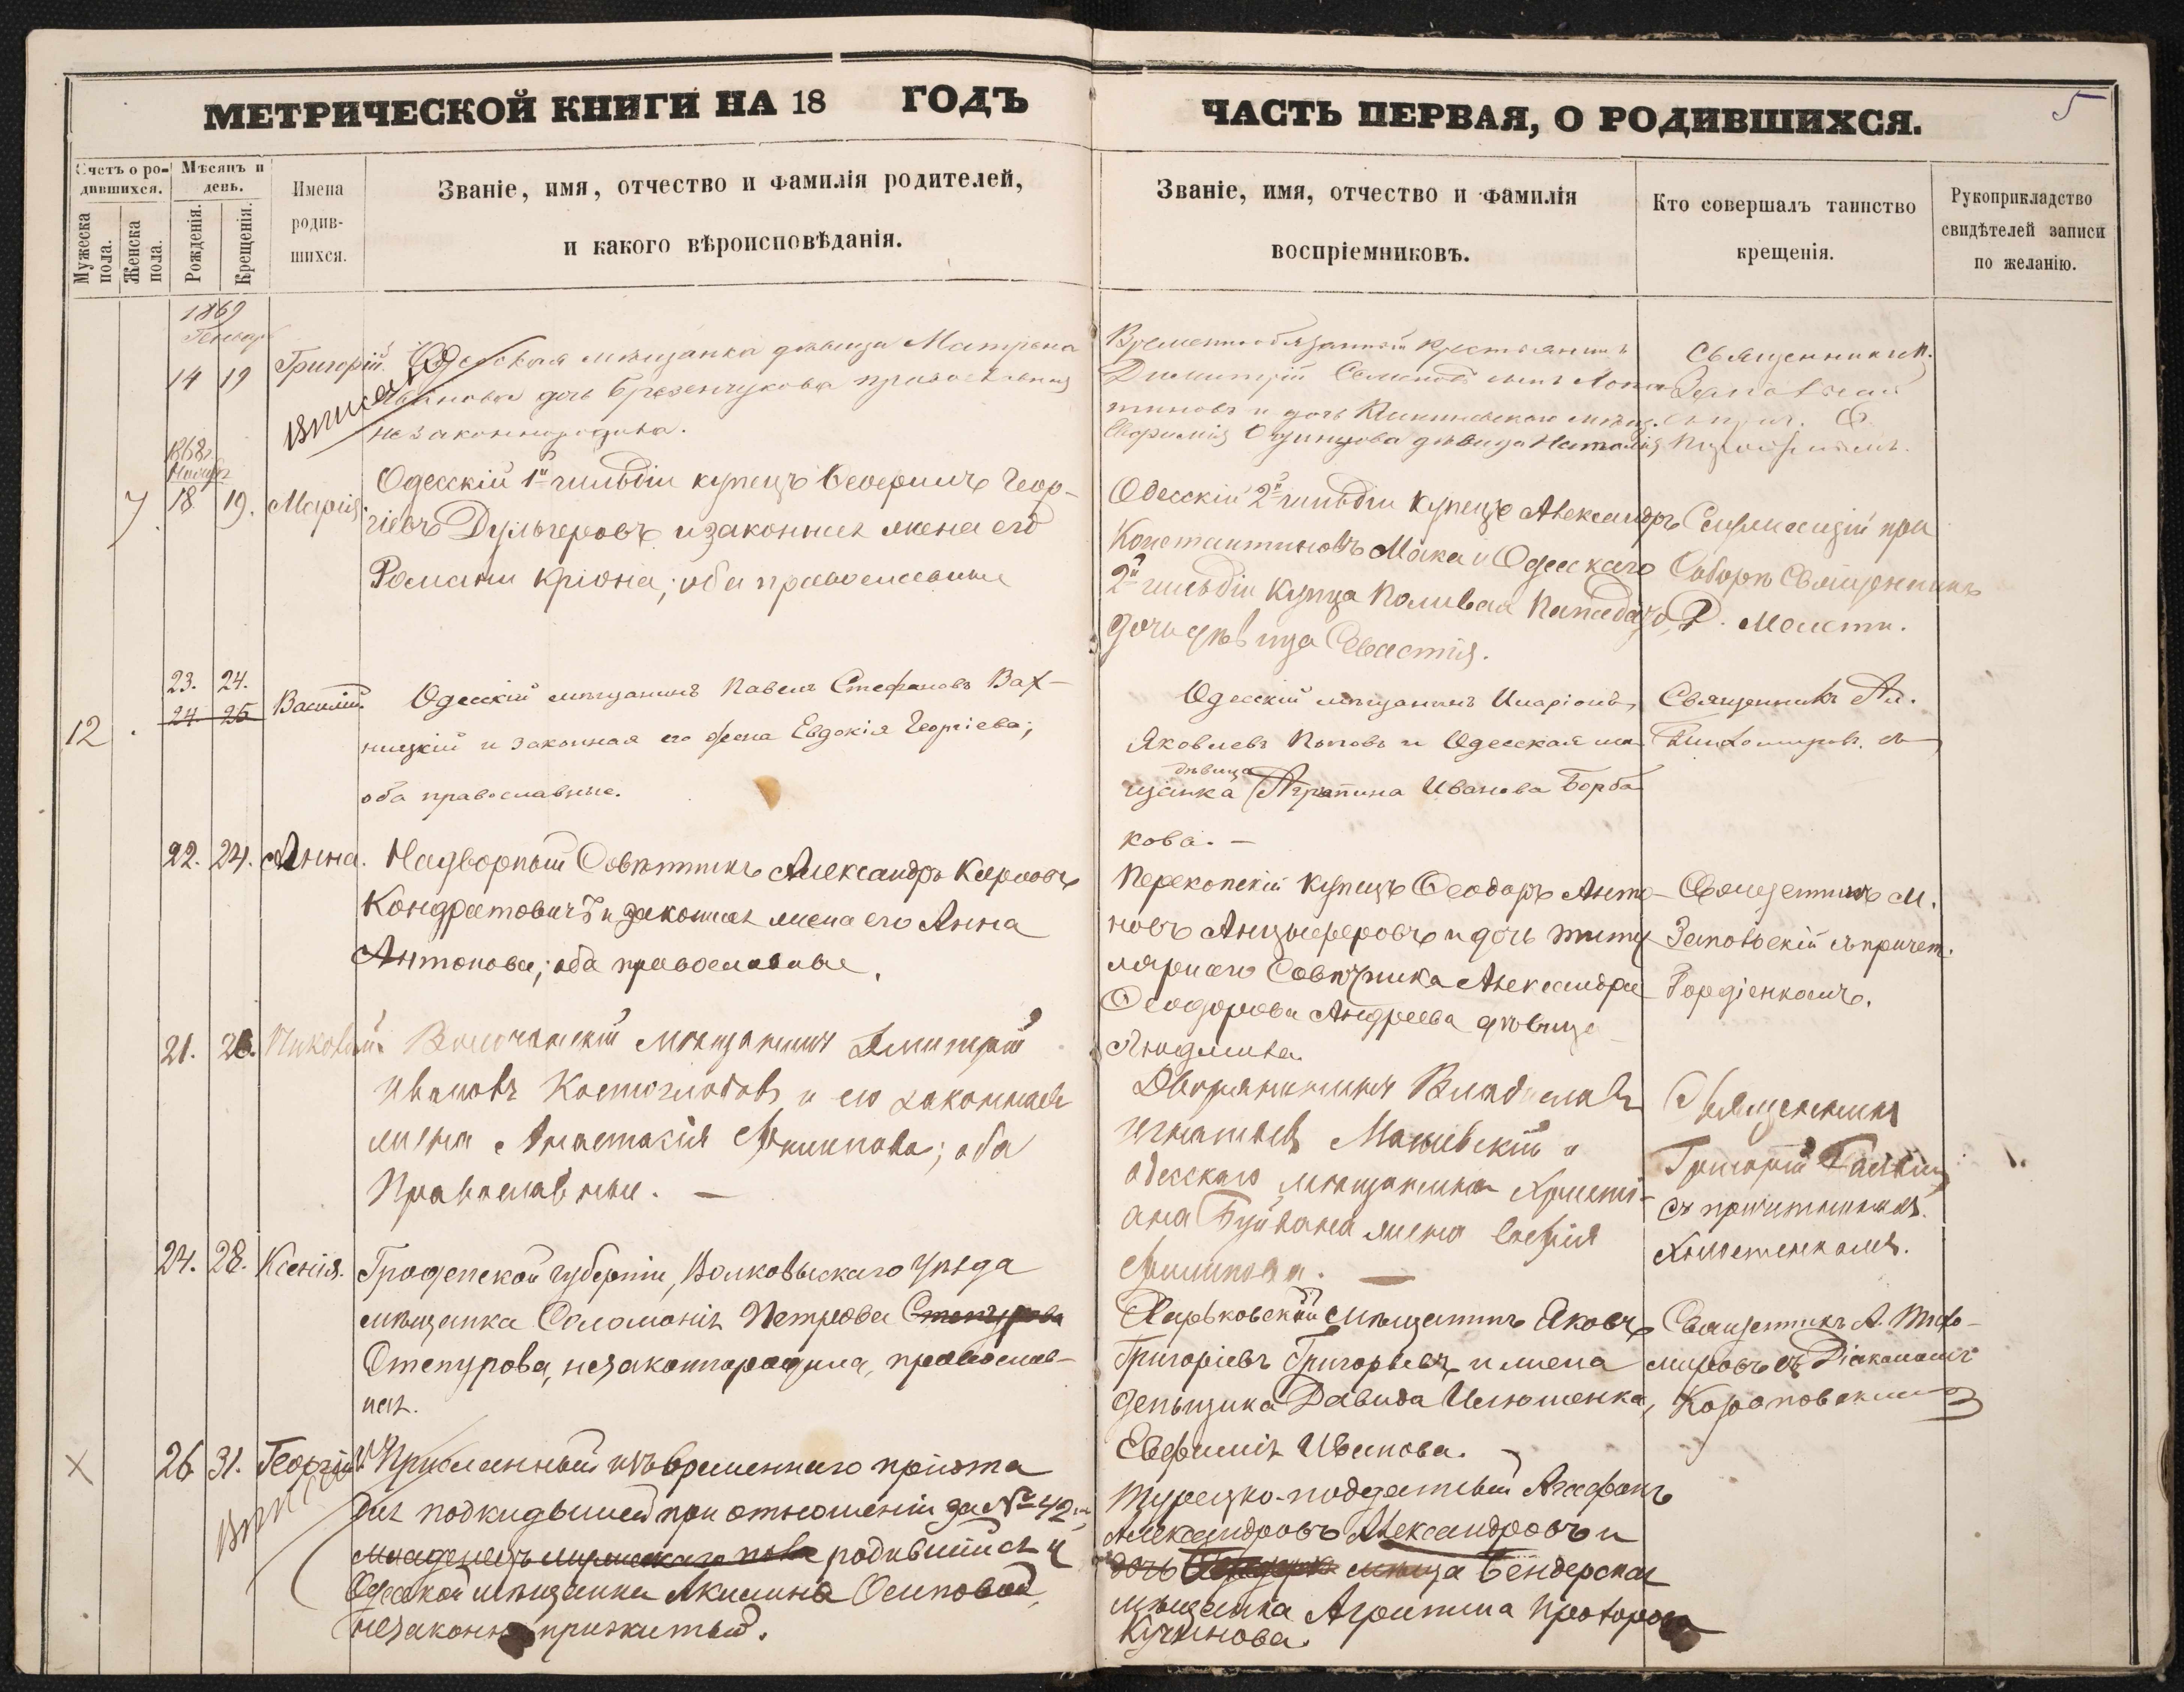 МЕТРИЧЕСКОЙ КНИГИ НА 18 ГОДЪ
ЧАСТЬ ПЕРВАЯ, О РОДИВШИХСЯ.
5
Счетъ о ро-
дившихся.
Мужеска пола.
Женска пола.
Мѣсяцъ и
день.
Рожденія.
Крещенія.
Имена
родив-
шихся.
Званіе, имя, отчество и фамилія родителей,
и какого вѣроисповѣданія.
Званіе, имя, отчество и фамилія
воспріемниковъ.
Кто совершалъ таинство
крещенія.
Рукоприкладство
свидѣтелей записи
по желанію.
1869
Генварь
14 19 Григорій. Одесская мѣщанка дѣвица Матрена
Иванова дочь православная
незаконнородила.
вписанъ
Временнообязанный крестьянинъ
Димитрій Семеновъ сынъ
тиновъ и дочь Кишиневскаго мѣщ.
Одинцова дѣвица Наталія
Священникъ М.
Заповскій
1868
Ноябрь
7. 18 19. Марія.
Одесскій 1й гильдіи купецъ Северинъ Геор-
гіевъ Дульгеровъ и законная жена его
Романи Кріона; оба православные
Одесскій 2й гильдіи купецъ Александръ
Константиновъ Мака и Одесскаго
2й гильдіи купца
дочь дѣвица Севастія.
при
Соборѣ Священникъ
23. 24.
24. 25
12. Василій. Одесскій мѣщанинъ Павелъ Стефановъ Вах-
ницкій и законная его жена Евдокія Георгіева;
оба православные.
Одесскій мѣщанинъ Иларіонъ
Яковлевъ Поповъ и Одесская мѣ
дѣвица
щанка Агрипина Иванова Борба
кова. —
Священникъ Ал.
Тихомировъ.
22. 24. Анна. Надворный Совѣтникъ Александръ Карповъ
Кондратовичъ и законная жена его Анна
Антонова; оба православные.
Перекопскій купецъ Ѳеодоръ Анто-
новъ Анцыферовъ и дочь титу
лярнаго Совѣтника Александра
Ѳеодорова Андреева дѣвица
Людмила.
Священникъ М.
Заповскій съ причет.
Гордіенкомъ.
21. 26. Николай. мѣщанинъ Димитрій
Ивановъ Костоглодовъ и его законная
жена Анастасія Филиппова; оба
Православные. —
Дворянинъ Владиславъ
Игнатьевъ и
одесскаго мѣщанина Христі-
ана жена Софія
Филиппова. —
Священникъ
Григорій
съ причетникомъ
24. 28. Ксенія. Гродненской губерніи, Волковыскаго уѣзда
мѣщанка Соломонія Петрова
Степурова, незаконнородила, православ-
ная.
Харьковскій мѣщанинъ Яковъ
Григоріевъ Григорьевъ и жена
деньщика Давида Илюшенка,
Евфимія Иванова.
Священникъ А. Тихо-
мировъ съ Діакономъ
X 26 31. Георгій. Присланный изъ временнаго пріюта
для подкидышей при отношеніи за № 42м,
младенецъ мужескаго пола родившійся у
Одесской мѣщанки Акилины Осиповой,
незаконно прижитый.
вписанъ
Турецко-подданный Агафонъ
Александровъ Александровъ и
дочь Бендерская
мѣщанка Агрипина Прохорова
Кучинова.